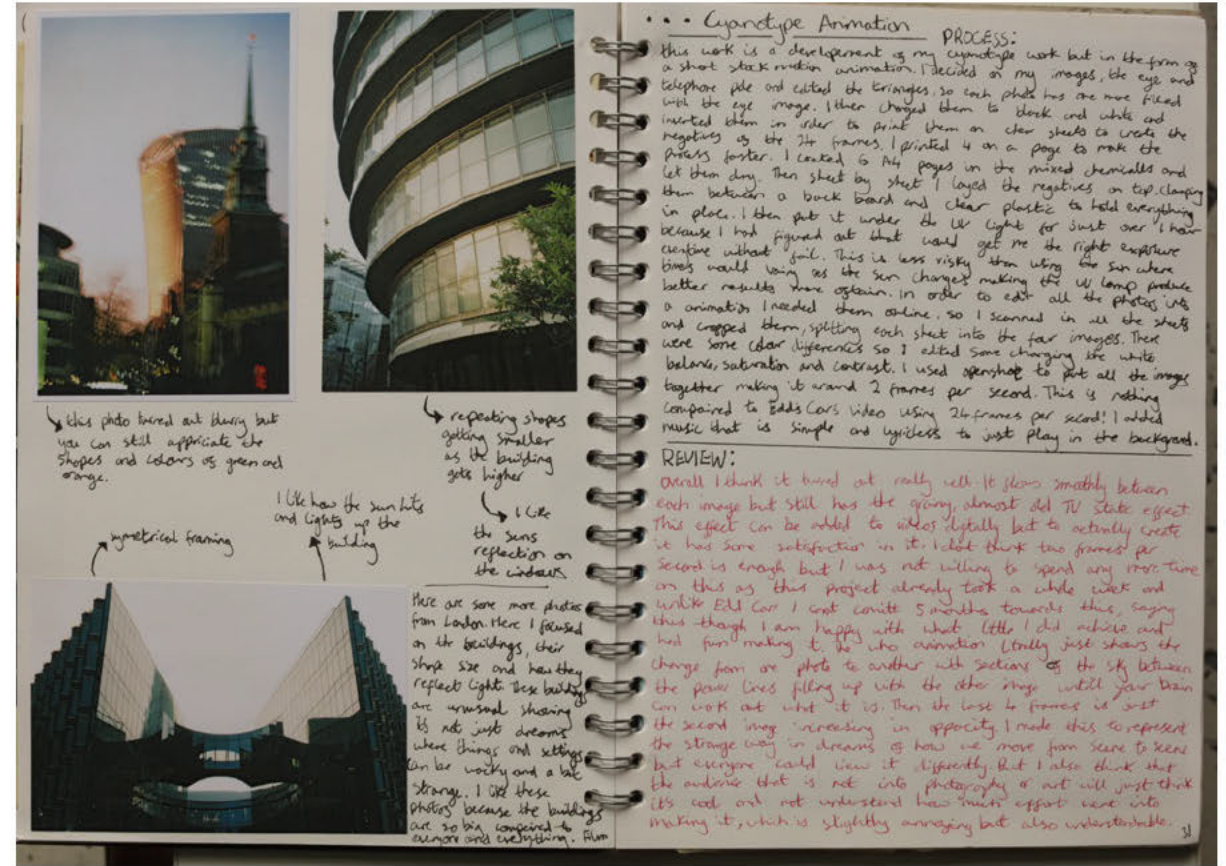 this photo turned out blurry but
you can still appriciate the
shapes and colours of green and
orange.
repeating shapes
getting smaller
as the building
gets higher
I like
the suns
reflection on
the windows
I like how the sun hits
and lights up the
building
symetrical framing
Here are some more photos
from London. Here I focused
on the buildings, their
shape size and how they
reflect light. These buildings
are unusual showing
its not just dreams
where things and settings
can be wacky and a bit
strange. I like these
photos because the buildings
are so big compaired to
everyone and everything. Film
... Cyanotype Animation
PROCESS:
this work is a development of my cyanotype work but in the form of
a short stock motion animation. I decided on my images, the eye and
telephone pole and edited the triangles, so each photo has one more filled
with the eye image. I then changed them to black and white and
inverted them in order to print them on clear sheets to create the
negatives as the 24 frames. I printed 4 on a page to make the
process faster. I coated 6 A4 pages in the mixed chemicalls and
let them dry. Then sheet by sheet I layed the negatives on top, clamping
them between a back board and clear plastic to hold everything
in place. I then put it under the UV light for just over 1 hour
because I had figured out that would get me the right exposure
everytime without fail. This is less risky than using the sun where
times would vary as the sun changes making the UV lamp produce
better results more often. In order to edit all the photos into
a animation I needed them online. so I scanned in all the sheets
and cropped them, splitting each sheet into the four images. There
were some colour differences so I edited some changing the white
balance, saturation and contrast. I used openshop to put all the images
together making it around 2 frames per second. This is nothing
compaired to Edds Cars video using 24 frames per second! I added
music that is simple and lyricless to just play in the background.
REVIEW:
overall I think it turned out really well. It flows smoothly between
each image but still has the grainy, almost old TV static effect.
This effect can be added to videos digitally but to actually create
it has some satisfaction in it. I dont think two frames per
second is enough but I was not willing to spend any more time
on this as this project already took a whole week and
unlike Edd Carr I cant comitt 5 months towards this, saying
this though I am happy with what little I did achieve and
had fun making it. The who animation litrally just shows the
change from one photo to another with sections of the sky between
the power lines filling up with the other image untill your brain
can work out what it is. Then the last 4 frames is just
the second image increasing in oppocity. I made this to represent
the strange way in dreams of how we move from scene to scene
but everyone could view it differently. But I also think that
the audience that is not into photography or art will just think
its cool and not understand how much effort went into
making it, which is slightly annoying but also understandable.